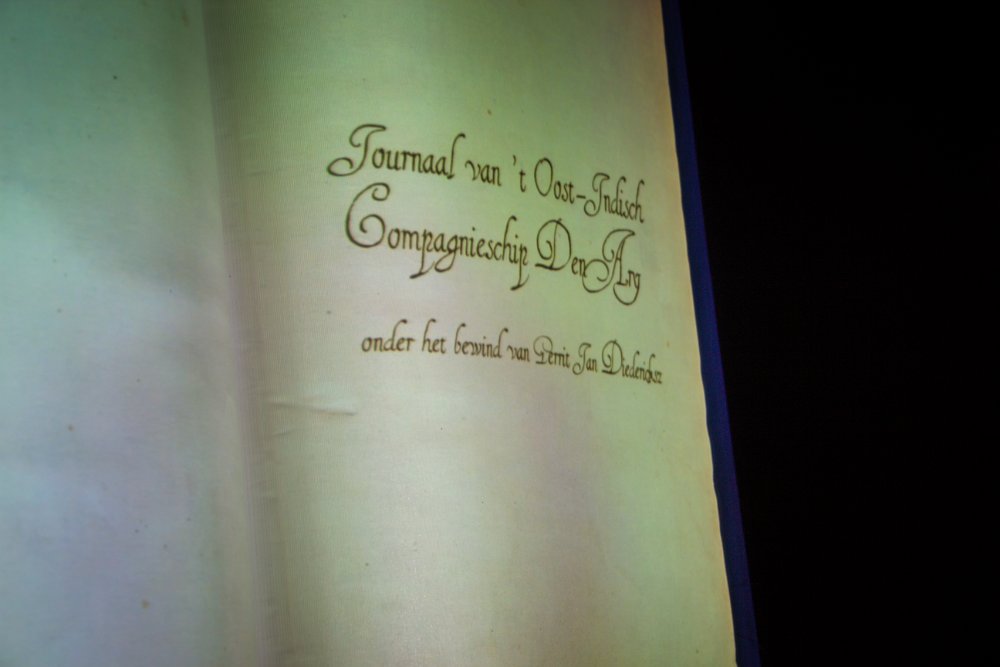 Journaal van 't Oost-Indisch
Compagnieschip Den Arg
onder het bewind van Gerrit Jan Diedericksz